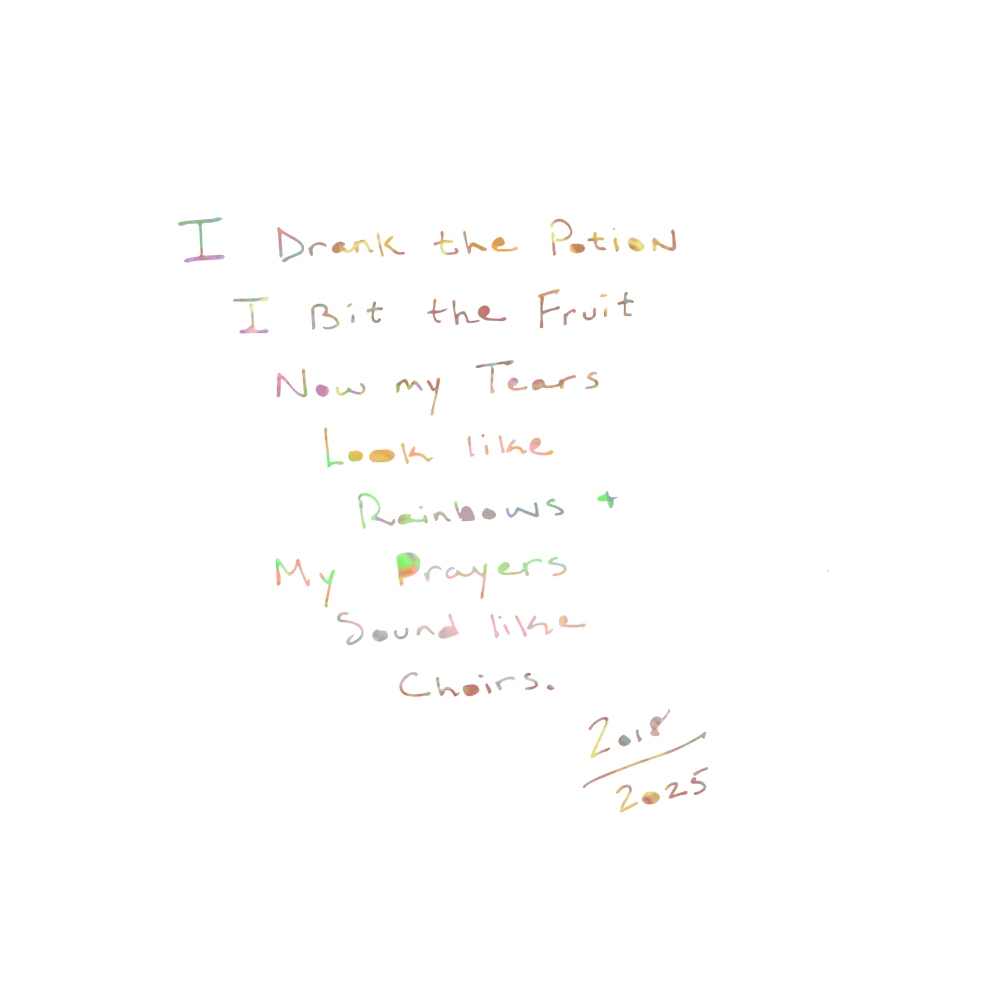 I Drank the Potion
I Bit the Fruit
Now my Tears
Look like
Rainbows +
My Prayers
Sound like
Choirs.
2018
2025